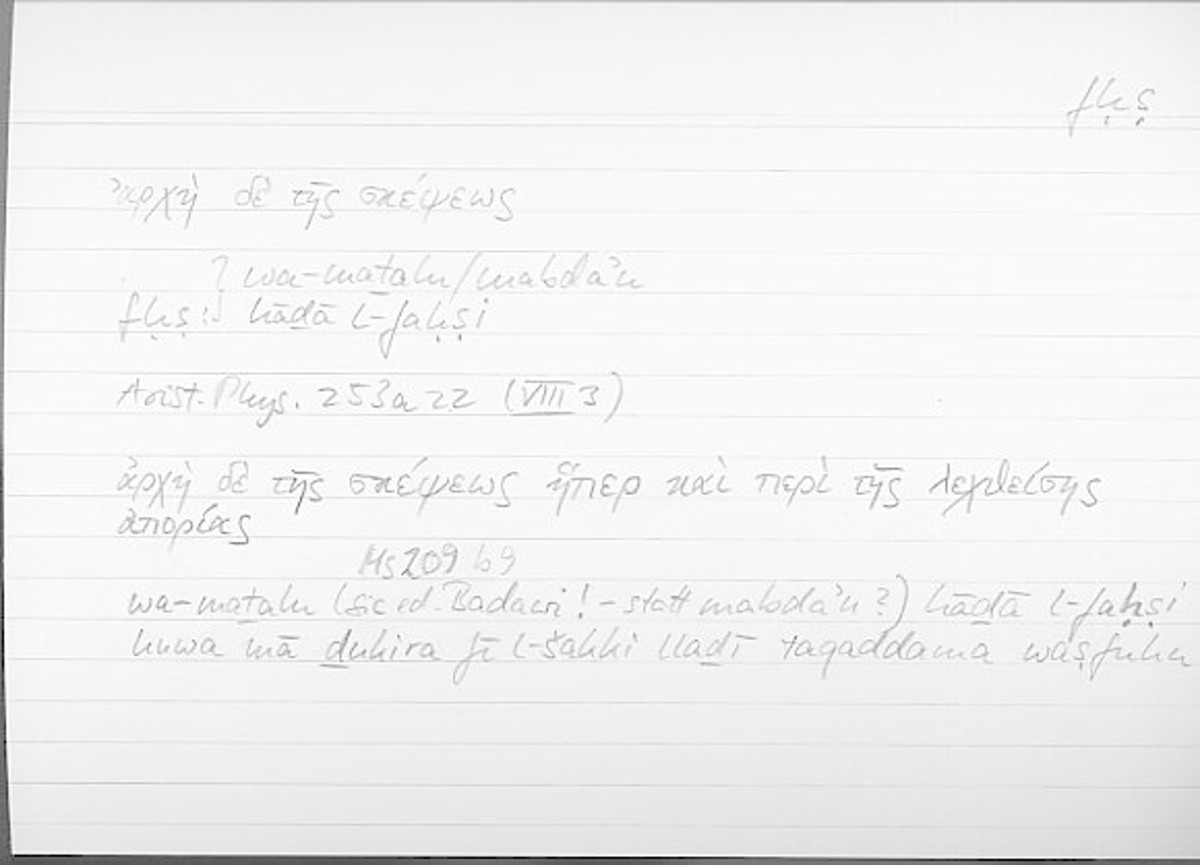 fḥṣ
ἀρχὴ δὲ τῆς σκέψεως
? wa-maṯalu/mabda'u
fḥṣ: hāḏā l-faḥṣi
Arist. Phys. 253a22 (VIII 3)
ἀρχὴ δὲ τῆς σκέψεως ἥπερ καὶ περὶ τῆς λεχθείσης
ἀπορίας
Ms 209 b9
wa-maṯalu (sic ed. Badawi! – statt mabda'u?) hāḏā l-faḥṣi
huwa mā ḏukira fī l-šakki llaḏī taqaddama waṣfuhu